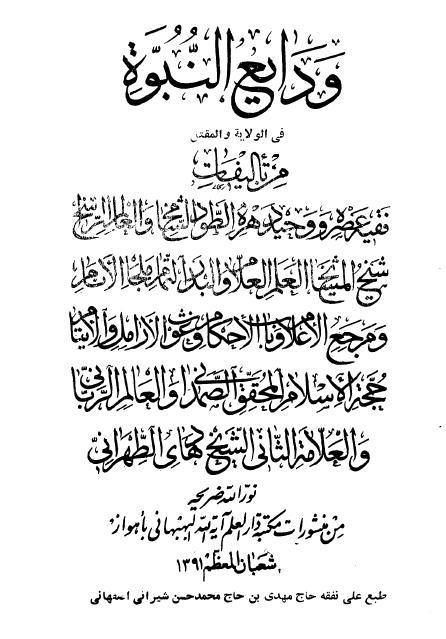 ودایع النُّبُوَّة
فی الولایة والمقتل
من تألیفات
فقیه عصره ووحید دهره الطود الشامخ والعالم الراسخ
شیخ المشایخ العلم العلام والبدر التمام ملجأ الأنام
ومرجع الأعلام وباب الأحکام وغوث الأرامل والأیتام
حجة الإسلام المحقق الصمدانی والعالم الربانی
والعلامة الثانی الشیخ هادی الطهرانی
نور الله ضریحه
من منشورات مکتبة دار العلم آیة الله البهبهانی بأهواز
شعبان المعظم ۱۳۹۱
طبع علی نفقه حاج مهدی بن حاج محمدحسن شیرانی اصتهانی